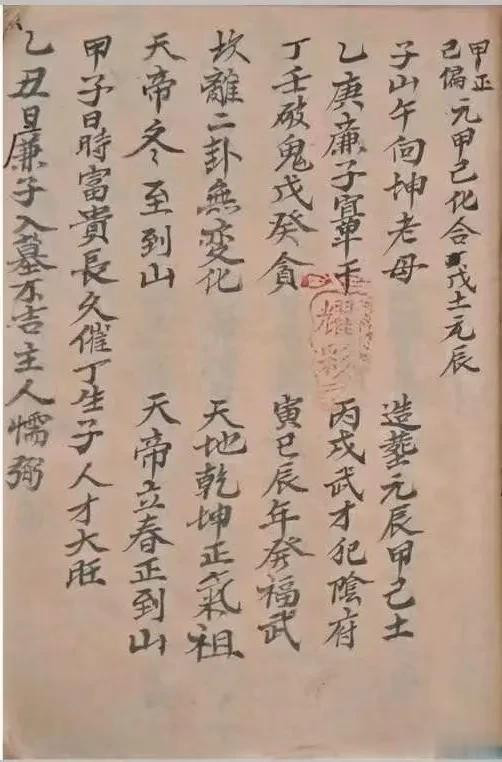 甲正
己偏
元甲己化合戊土元辰
子山午向坤老母 造塟元辰甲己土
乙庚廉子寡單干 丙戌武才犯陰府
丁壬破鬼戊癸貪 寅巳辰年發福武
坎離二卦無变化 天地乾坤正氣祖
天帝冬至到山 天帝立春正到山
甲子日時富貴長久催丁生子人才大旺
乙丑旦廉子入墓不吉主人懦弱